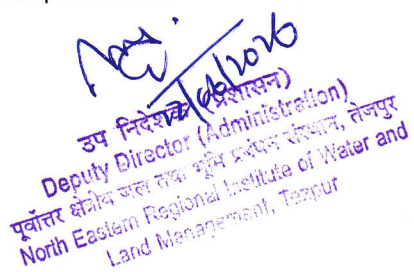 उप निदेशक (प्रशासन)
Deputy Director (Administration)
पूर्वोत्तर क्षेत्रीय जल तथा भूमि प्रबंधन संस्थान, तेजपुर
North Eastern Regional Institute of Water and
Land Management, Tezpur